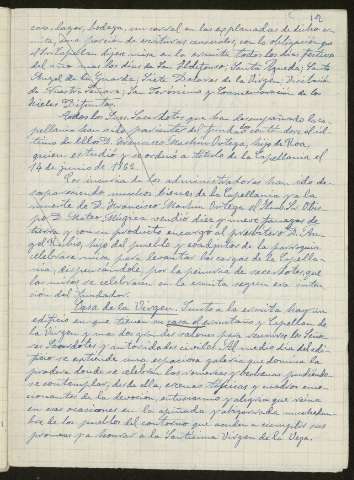 12
casa, lagar, bodega, un corral en las esplanadas de dicha ermita
el Capellán dijese misa en la ermita todos los días festivos
del año mas los días de San Ildefonso, Santa Agueda, Santo
Angel de la Guarda, Siete Dolores de la Virgen, Visitación
de Nuestra Señora, San Jerónimo y Conmemoración de los
Fieles Difuntos.
Todos los Sres. Sacerdotes que han desempeñado la capellanía
han sido parientes del fundador
D. Francisco Martín Ortega, hijo de Roa,
quien estudió y se ordenó a título de la Capellanía el
14 de junio de 1862.
Por incuria de los administradores han ido desapareciendo
muchos bienes de la Capellanía y a la
muerte de D. Francisco Martín Ortega el Ilmo. Sr. Obispo
D. Mateo Múgica vendió diez y nueve fanegas de
tierra y con su producto encargó al presbítero D. Angel
Rubio, hijo del pueblo y coadjutor de la parroquia
celebrara misa para levantar las cargas de la Capellanía,
dispensándole por la penuria de sacerdotes, que
las misas se celebraran en la ermita según era intención
del fundador.
Casa de la Virgen. Junto a la ermita hay un
edificio en que tienen su casa el ermitaño y Capellán de
la Virgen y una hermosa sala para reuniones de Señores
Sacerdotes y autoridades civiles. Al medio día del edificio
se extiende una espaciosa galería que domina la
pradera donde se celebran las romerías y verbenas pudiendo
se contemplar, desde ella, escenas típicas y cuadros emocionantes
de la devoción, entusiasmo y alegría que reina
en esas ocasiones en la apiñada y abigarrada muchedumbre
de los pueblos del contorno que acuden a cumplir sus
promesas y a honrar a la Santísima Virgen de la Vega.